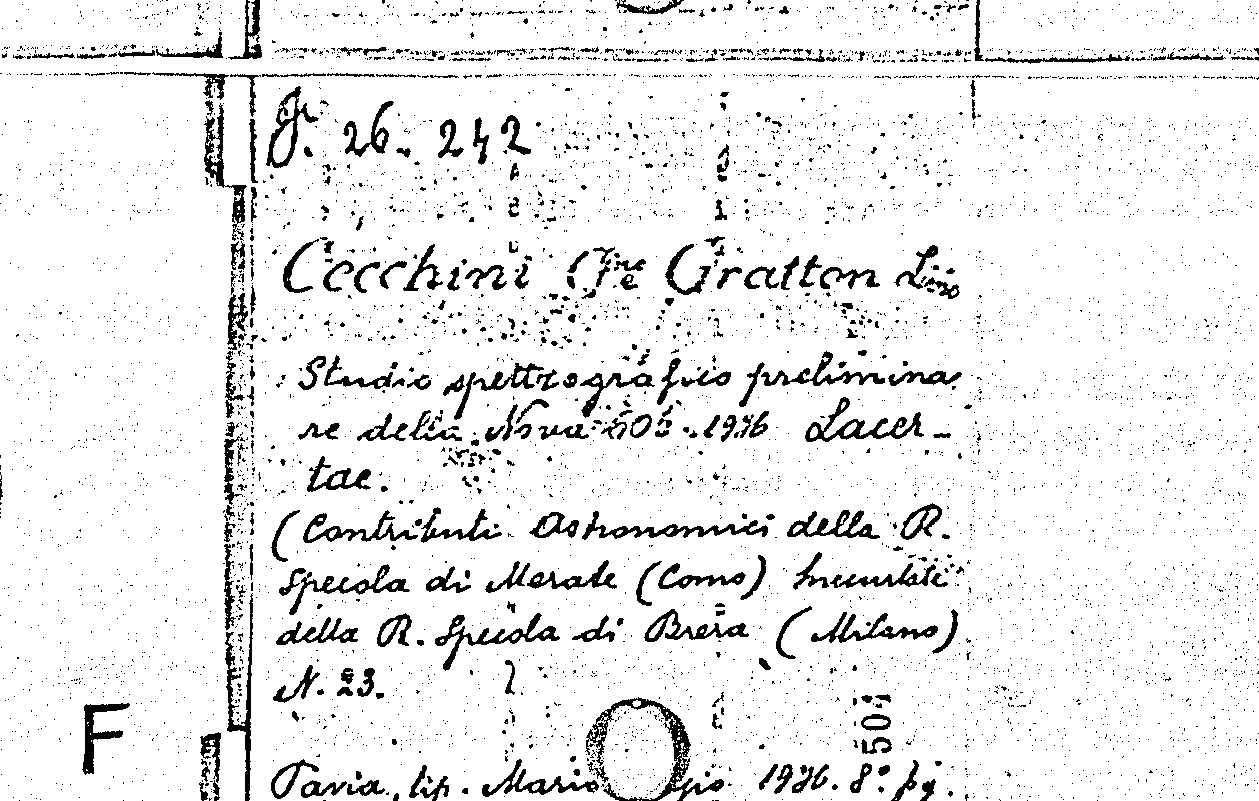 J. 26. 242
Cecchini Gne Gratton Livio
Studio spettrografico prelimina
re della Nova 605.1936 Lacer-
tae.
(Contributi Astronomici della R.
Specola di Merate (Como) Succursale
della R. Specola di Brera (Milano)
N. 23.
F
501
Pavia, tip. Mario 1936. 8° pg.